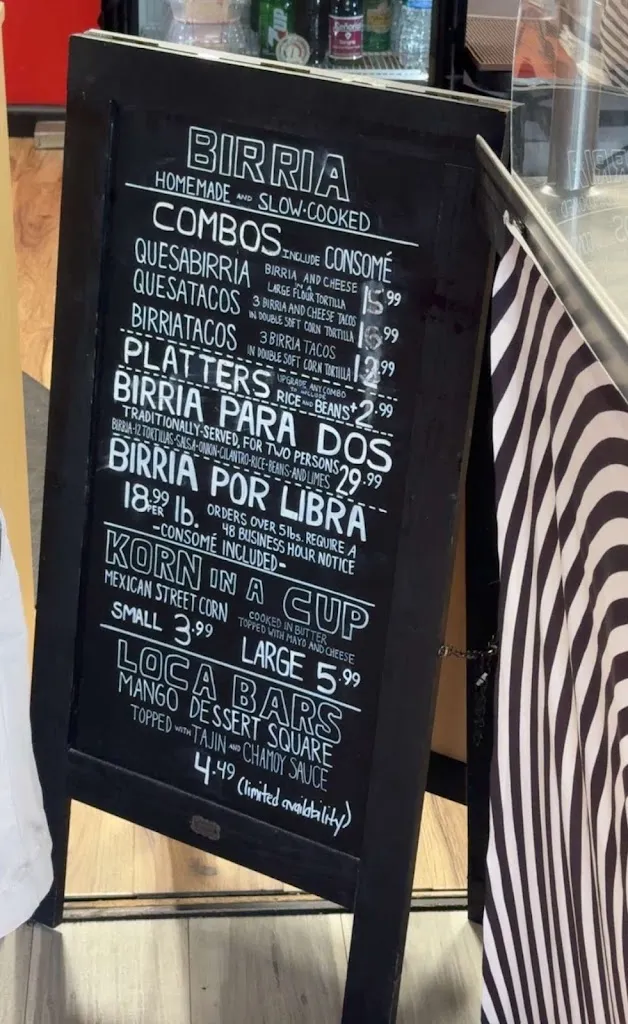 BIRRIA
HOMEMADE AND SLOW-COOKED
COMBOS INCLUDE CONSOMÉ
QUESABIRRIA BIRRIA AND CHEESE IN A LARGE FLOUR TORTILLA 15.99
QUESATACOS 3 BIRRIA AND CHEESE TACOS IN DOUBLE SOFT CORN TORTILLA 16.99
BIRRIATACOS 3 BIRRIA TACOS IN DOUBLE SOFT CORN TORTILLA 12.99
PLATTERS UPGRADE ANY COMBO TO INCLUDE RICE AND BEANS +2.99
BIRRIA PARA DOS
TRADITIONALLY-SERVED, FOR TWO PERSONS
BIRRIA-12 TORTILLAS-SALSA-ONION-CILANTRO-RICE-BEANS-AND LIMES 29.99
BIRRIA POR LIBRA
18.99 PER lb. ORDERS OVER 5 lbs. REQUIRE A
48 BUSINESS HOUR NOTICE
-CONSOMÉ INCLUDED-
KORN IN A CUP
MEXICAN STREET CORN COOKED IN BUTTER
TOPPED WITH MAYO AND CHEESE
SMALL 3.99 LARGE 5.99
LOCA BARS
MANGO DESSERT SQUARE
TOPPED WITH TAJIN AND CHAMOY SAUCE
4.49 (limited availability)